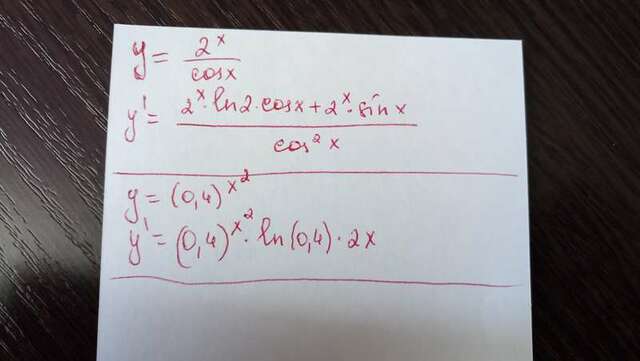 y = 2^x / cosx
y' = 2^x · ln2 · cosx + 2^x · sinx / cos^2 x
y = (0,4)^x^2
y' = (0,4)^x^2 · ln(0,4) · 2x